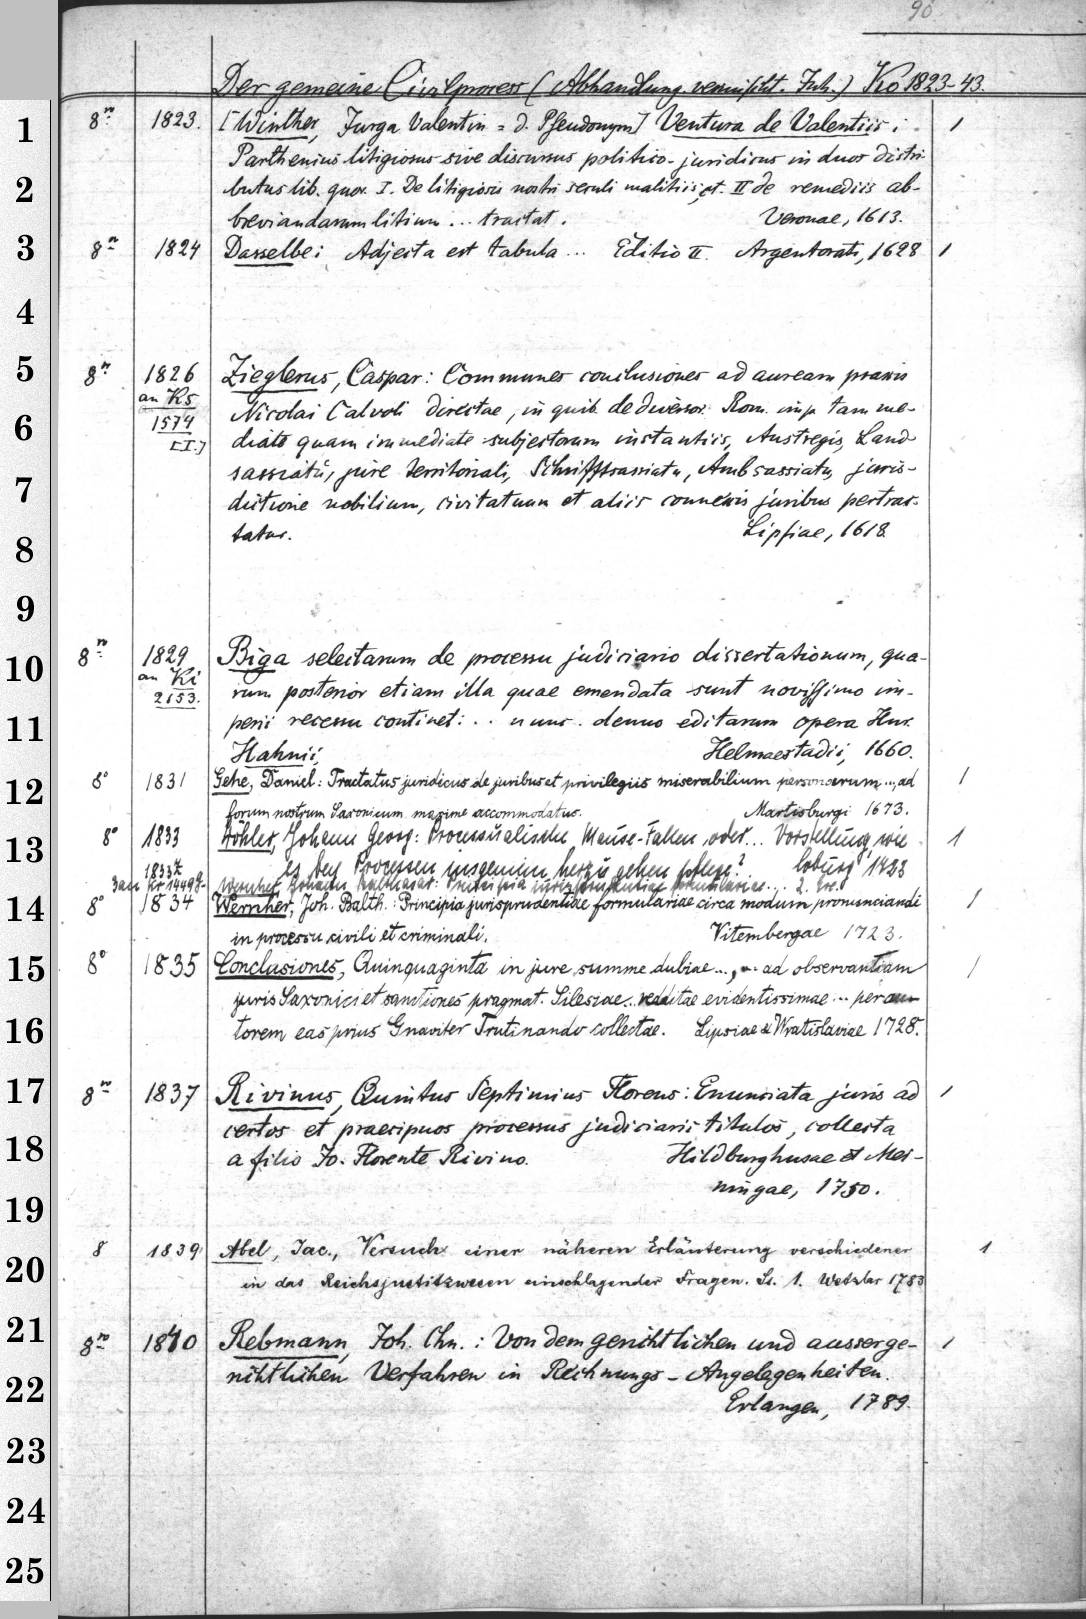 90
Der gemeine Civilprocess (Abhandlung. vermischt. Inh.) Ko 1823-43.
8º 1823. [Winther, Jurga Valentin = d. Pseudonym] Ventura de Valentiis: 1
Parthenius litigiosus sive discursus politico-juridicus in duos distri-
butus lib. quor. I. De litigiosis nostri seculi malitiis, et. II de remediis ab-
breviandarum litium ... tractat. Veronae, 1613.
8º 1824 Dasselbe: Adjecta est tabula ... Editio II. Argentorati, 1628 1
8º 1826 Zieglerus, Caspar: Communes conclusiones ad auream praxin
an Ks Nicolai Calvoli directae, in quib. de diversor. Rom. imp. tam me-
1574 diate quam immediate subjectorum instantiis, Austregis, Land-
[I.] sassiatu, jure territoriali, Schriftsassiatu, Ambsassiatu, juris-
dictione nobilium, civitatum et aliis connexis juribus pertrac-
tatur. Lipsiae, 1618
8º 1829 Biga selectarum de processu judiciario dissertationum, qua-
an Ki rum posterior etiam illa quae emendata sunt novissimo im-
2153. perii recessu continet: .. nunc denuo editarum opera Henr.
Hahnii, Helmaestadii, 1660.
8º 1831 Gehe, Daniel: Tractatus juridicus de juribus et privilegiis miserabilium personarum ..., ad 1
forum nostrum Saxonicum maxime accommodatus. Martisburgi 1673.
8º 1833 Döhler, Johann Georg: Processualische Mause-Fallen, oder ... Vorstellung, wie 1
es bey Processen insgemein herzugehen pflege? Coburg 1723
1833ᵃ Wernher, Johann Balthasar: Principia jurisprudentiae formulariae ... 2.
8º 1834 Wernher, Joh. Balth.: Principia jurisprudentiae formulariae circa modum pronunciandi 1
in processu civili et criminali. Vitembergae 1723.
8º 1835 Conclusiones, Quinquaginta in jure summe dubiae ..., ad observantiam 1
juris Saxonici et sanctiones pragmat. Silesiae .. redditae evidentissimae ... per au-
torem eas prius Gnaviter Trutinando collectae. Lipsiae & Wratislaviae 1728.
8º 1837 Rivinus, Quintus Septimius Florens: Enunciata juris ad 1
certos et praecipuos processus judiciarii titulos, collecta
a filio Jo. Florente Rivino. Hildburghusae et Mei-
ningae, 1750.
8 1839 Abel, Jac., Versuch einer näheren Erläuterung verschiedener 1
in das Reichsjustitzwesen einschlagender Fragen. St. 1. Wetzlar 1783
8º 1840 Rebmann, Joh. Chn.: Von dem gerichtlichen und ausserge- 1
richtlichen Verfahren in Rechnungs-Angelegenheiten.
Erlangen, 1789.
1
2
3
4
5
6
7
8
9
10
11
12
13
14
15
16
17
18
19
20
21
22
23
24
25